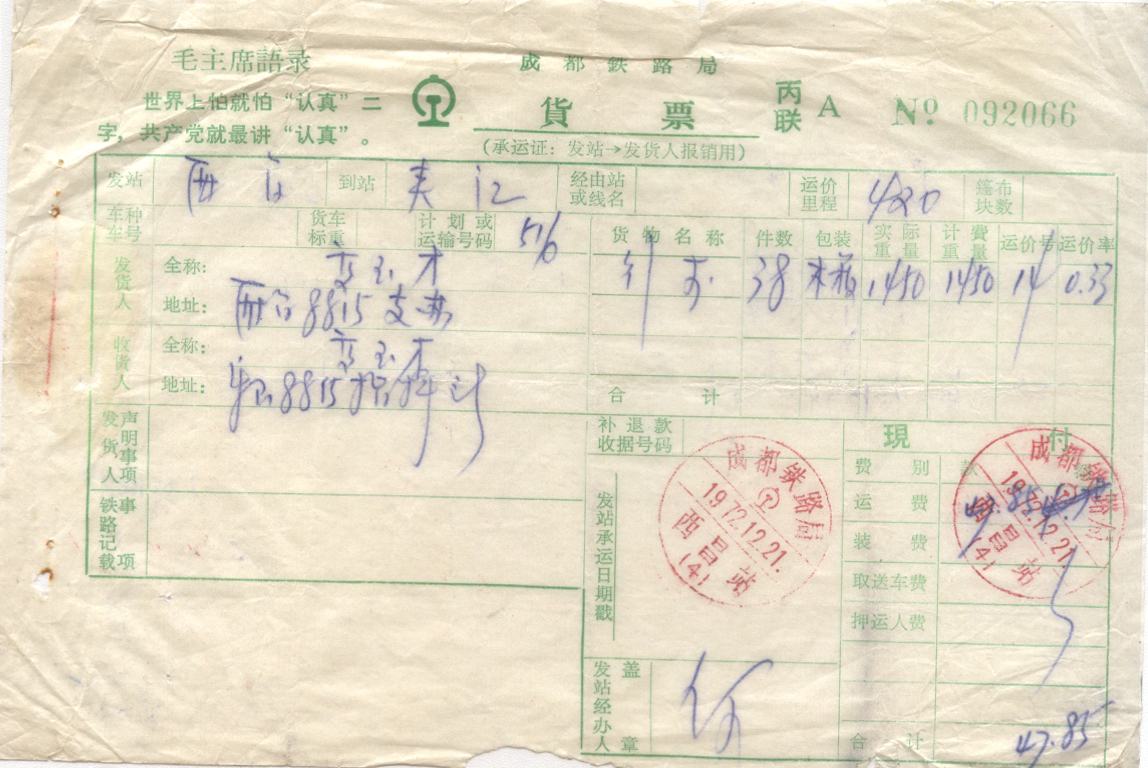 毛主席語录
世界上怕就怕“认真”二
字，共产党就最讲“认真”。
成都鉄路局
貨票
(承运证：发站→发货人报销用)
丙联 A № 092066
发站 西昌 到站 夹江 经由站或线名 运价里程 420 篷布块数
车种车号 货车标重 计划或运输号码 51/6
发货人 全称：
地址：西昌8815支
收货人 全称：
地址：8815
货物名称 件数 包装 实际重量 计費重量 运价号 运价率
38 木箱 1450 1450 14 0.33
合计
发货人声明事项
铁路记载事项
补退款收据号码
发站承运日期戳
成都铁路局
1972.12.21.
西昌站
(4)
发站经办人盖章 何
現付
费别 款
运费 47.85
装费
取送车费
押运人费
合计 47.85
成都铁路局
1972.12.21
西昌站
(4)